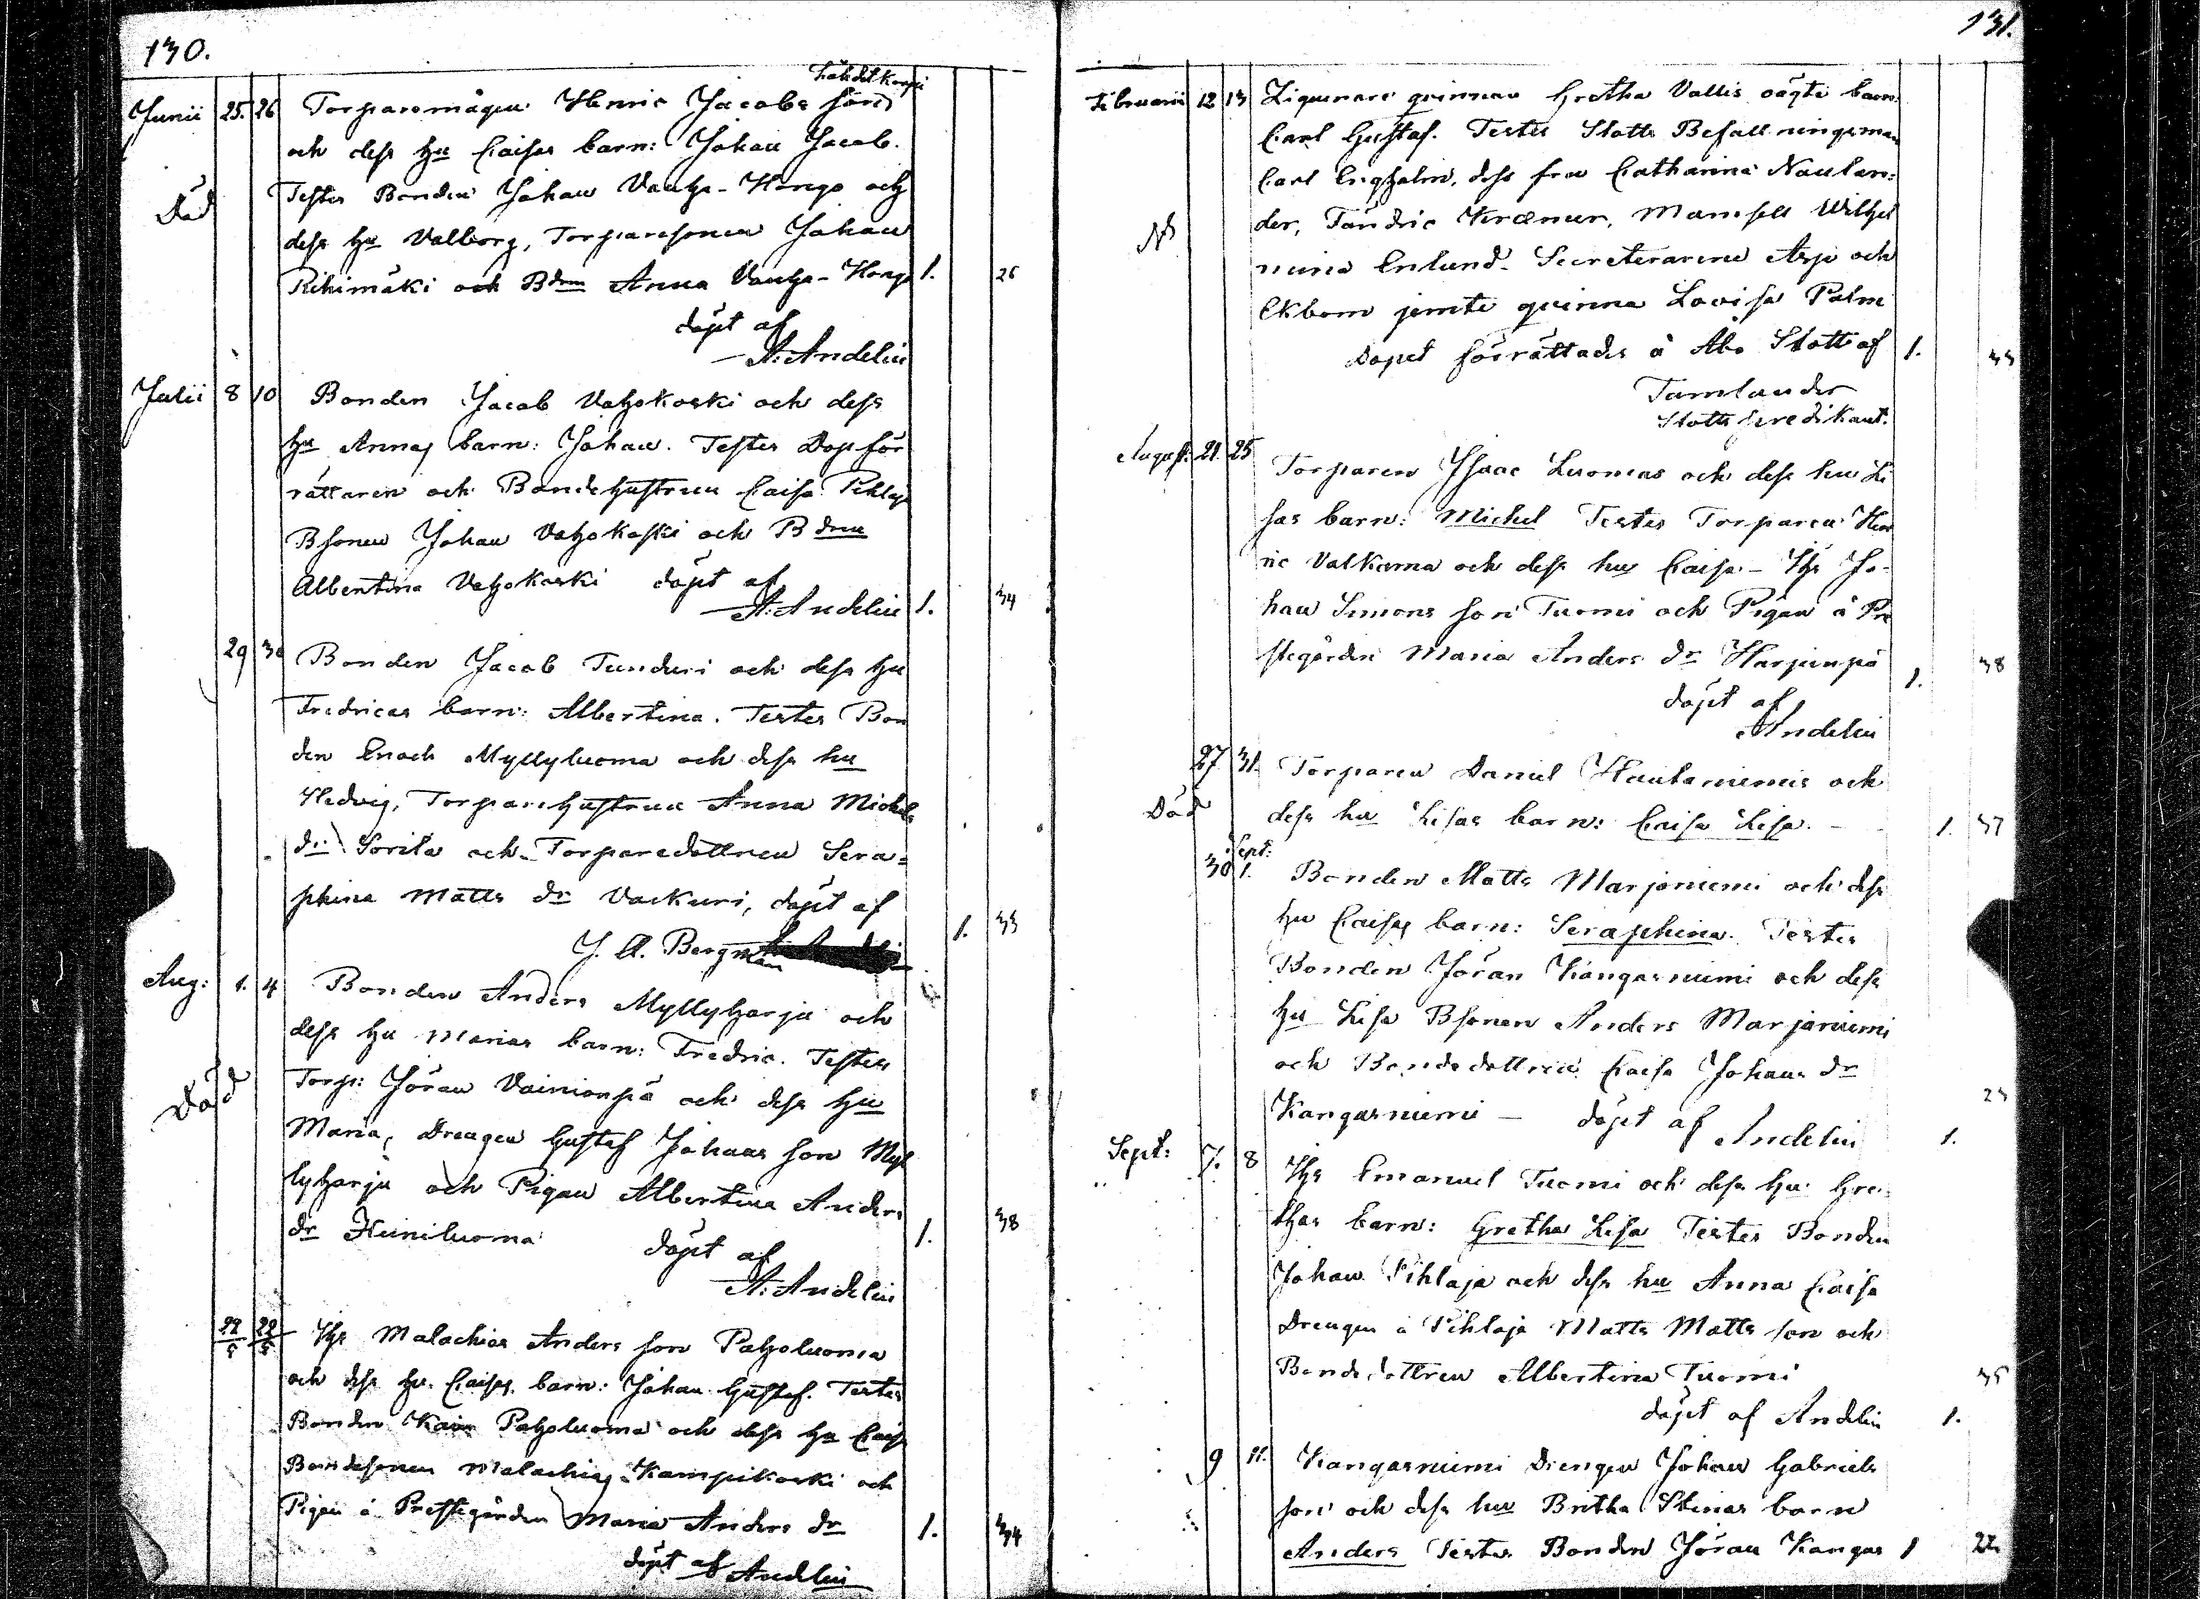 130.
Junii 25. 26 Torparemågen Henric Jacobs son
och dess hu Caisas barn: Johan Jacob.
Testes Bonden Johan Vanha-Hongo och
Död
dess hu Valborg, Torparesonen Johan
Rihimäki och Bdrn Anna Vanha-Hongo 1. 26
döpt af
A. Andelin
Julii 8 10 Bonden Jacob Vatzokoski och dess
hu Annas barn: Johan. Testes Dopför
rättaren och Bondehustrun Caisa Pihlaja
Bsonen Johan Vatzokoski och Bdrn
Albertina Vatzokoski döpt af
A. Andelin 1. 34
29 30 Bonden Jacob Tunduri och dess hu
Fredricas barn: Albertina. Testes Bon
den Enoch Myllyluoma och dess hu
Hedvig, Torparehustrun Anna Michels
dr Sorila och Torparedottren Sera=
phina Matts dr Vackuri, döpt af
J. A. Bergman 1. 33
Aug: 1. 4 Bonden Anders Myllyharju och
dess hu Marias barn: Fredric. Testes
Torp: Jöran Vainionpä och dess hu
Död
Maria, Drengen Gustaf Johans son Myl
lyharju och Pigan Albertina Anders
dr Heiniluoma 1. 38
döpt af
A. Andelin
22/8 22/8 Hs Malachias Anders son Patzoluoma
och dess hu Caisas barn: Johan Gustaf. Testes
Bonden Patzoluoma och dess hu Caisa
Bondesonen Malachias Kampikoski och
Pigan å Prestegården Maria Anders dr 1. 34
döpt af Andelin
131.
Februarii 12 13 Ziguenare quinnan Gretha Vallis oägte barn
Carl Gustaf. Testes Slotts Befallningsman
Carl Engholm, dess fru Catharina Naulan=
der, Mamsell Wilhel
mina Enlund. Secreterarene Asp och
Ekbom jemte quinna Lovisa Palm
Dopet förrättades å Åbo Slott af 1. 33
Tamlander
Slotts Predikant.
August: 21. 25 Torparen Isaac Luomas och dess hu Li
sas barn: Michel Testes Torparen Hen
ric Valkama och dess hu Caisa - Hs Jo-
han Simons son Tuomi och Pigan å Pre
stegården Maria Anders dr Harjunpä 1. 38
döpt af
Andelin
27 31. Torparen Daniel Hautaniemis och
Död
dess hu Lisas barn: Caisa Lisa. - 1. 37
Sept:
30 1. Bonden Matts Marjaniemi och dess
hu Caisas barn: Seraphina. Testes
Bonden Jöran Kangasniemi och dess
hu Lisa Bsonen Anders Marjaniemi
och Bondedottren Caisa Johans dr
Kangasniemi - döpt af Andelin 1. 23
Sept: 7. 8 Hs Emanuel Tuomi och dess hu Gre
thas barn: Gretha Lisa Testes Bonden
Johan Pihlaja och dess hu Anna Caisa
Drengen å Pihlaja Matts Matts son och
Bondedottren Albertina Tuomi 35
döpt af Andelin 1.
9 11. Kangasniemi Drengen Johan Gabriels
son och dess hu Britha Stinas barn
Anders Testes Bonden Jöran Kangas 1 22